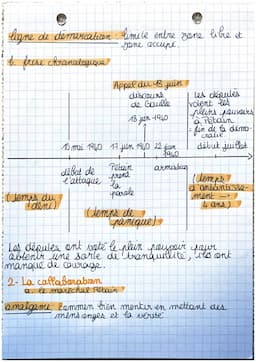 ligne de démarcation : limite entre zone libre et
zone occupé.
b. frise chronologique
Appel du 18 juin
discours
de Gaulle
18 juin 1940
les députés
votent les
pleins pouvoirs
à Pétain
- fin de la démo-
cratie
10 mai 1940
17 juin 1940
22 juin
1940
début juillet
début de
l'attaque
Pétain
prend
la
parole
armistice
(temps du
déni)
(temps de
panique)
(temps
d'anéantisse-
ment →
4 ans)
Les députés ont voté le plein pouvoir pour
obtenir une sorte de tranquillité, ils ont
manqué de courage.
2- La collaboration
a. le maréchal Pétain
amalgame : comment bien mentir en mettant des
mensonges et la vérité